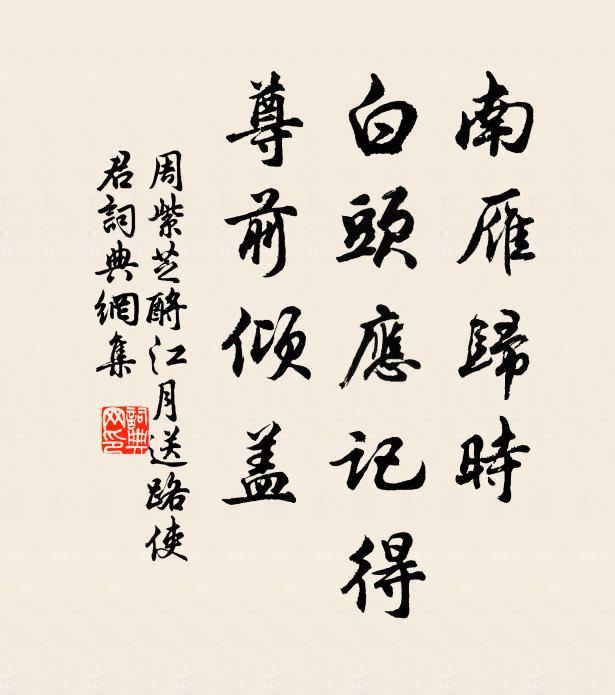 南雁歸時
白頭應記得
尊前傾盖
周紫芝酹江月送路使
君詞典網集
詞典
网印